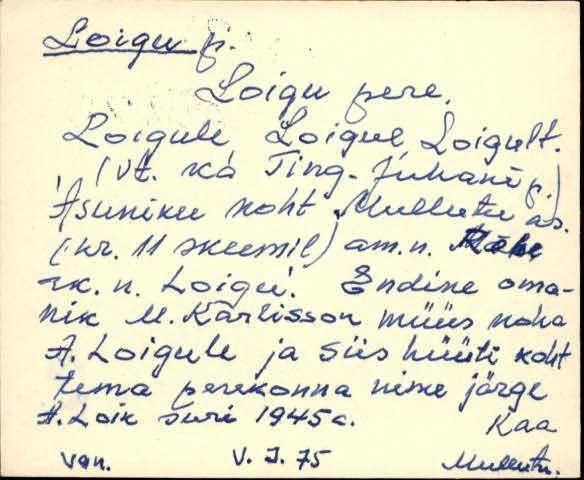 Loigu p.
Loigu pere.
Loigule Loigul Loigult.
(Vt. ka Ting-Juhani p.)
Asuniku koht Mullutu as.
(nr. 11 skeemil) am. n.
rk. n. Loigu. Endine oma-
nik M. Karlisson müüs koha
A. Loigule ja siis hüüti koht
tema perekonna nime järge
A. Loik suri 1945 a.
Kaa
van. V. J. 75 Mullutu.